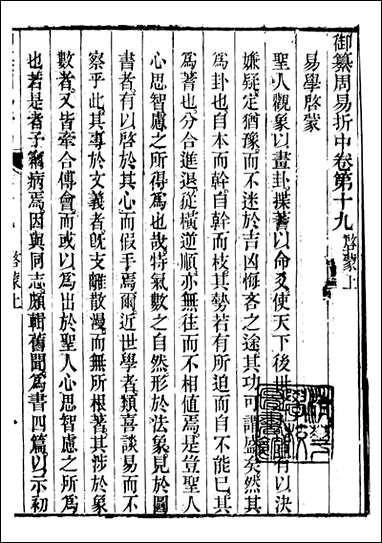 御纂周易折中卷第十九 啓蒙上
易學啓蒙
聖人觀象以畫卦揲蓍以命爻使天下後世 有以決
嫌疑定猶豫而不迷於吉凶悔吝之途其功可謂盛矣然其
爲卦也自本而幹自幹而枝其勢若有所迫而自不能已其
爲蓍也分合進退從橫逆順亦無往而不相值焉是豈聖人
心思智慮之所得爲也哉特氣數之自然形於法象見於圖
書者有以啓於其心而假手焉爾近世學者類喜談易而不
察乎此其專於文義者旣支離散漫而無所根著其涉於象
數者又皆牽合傅會而或以爲出於聖人心思智慮之所爲
也若是者予竊病焉因與同志頗輯舊聞爲書四篇以示初
啓蒙上